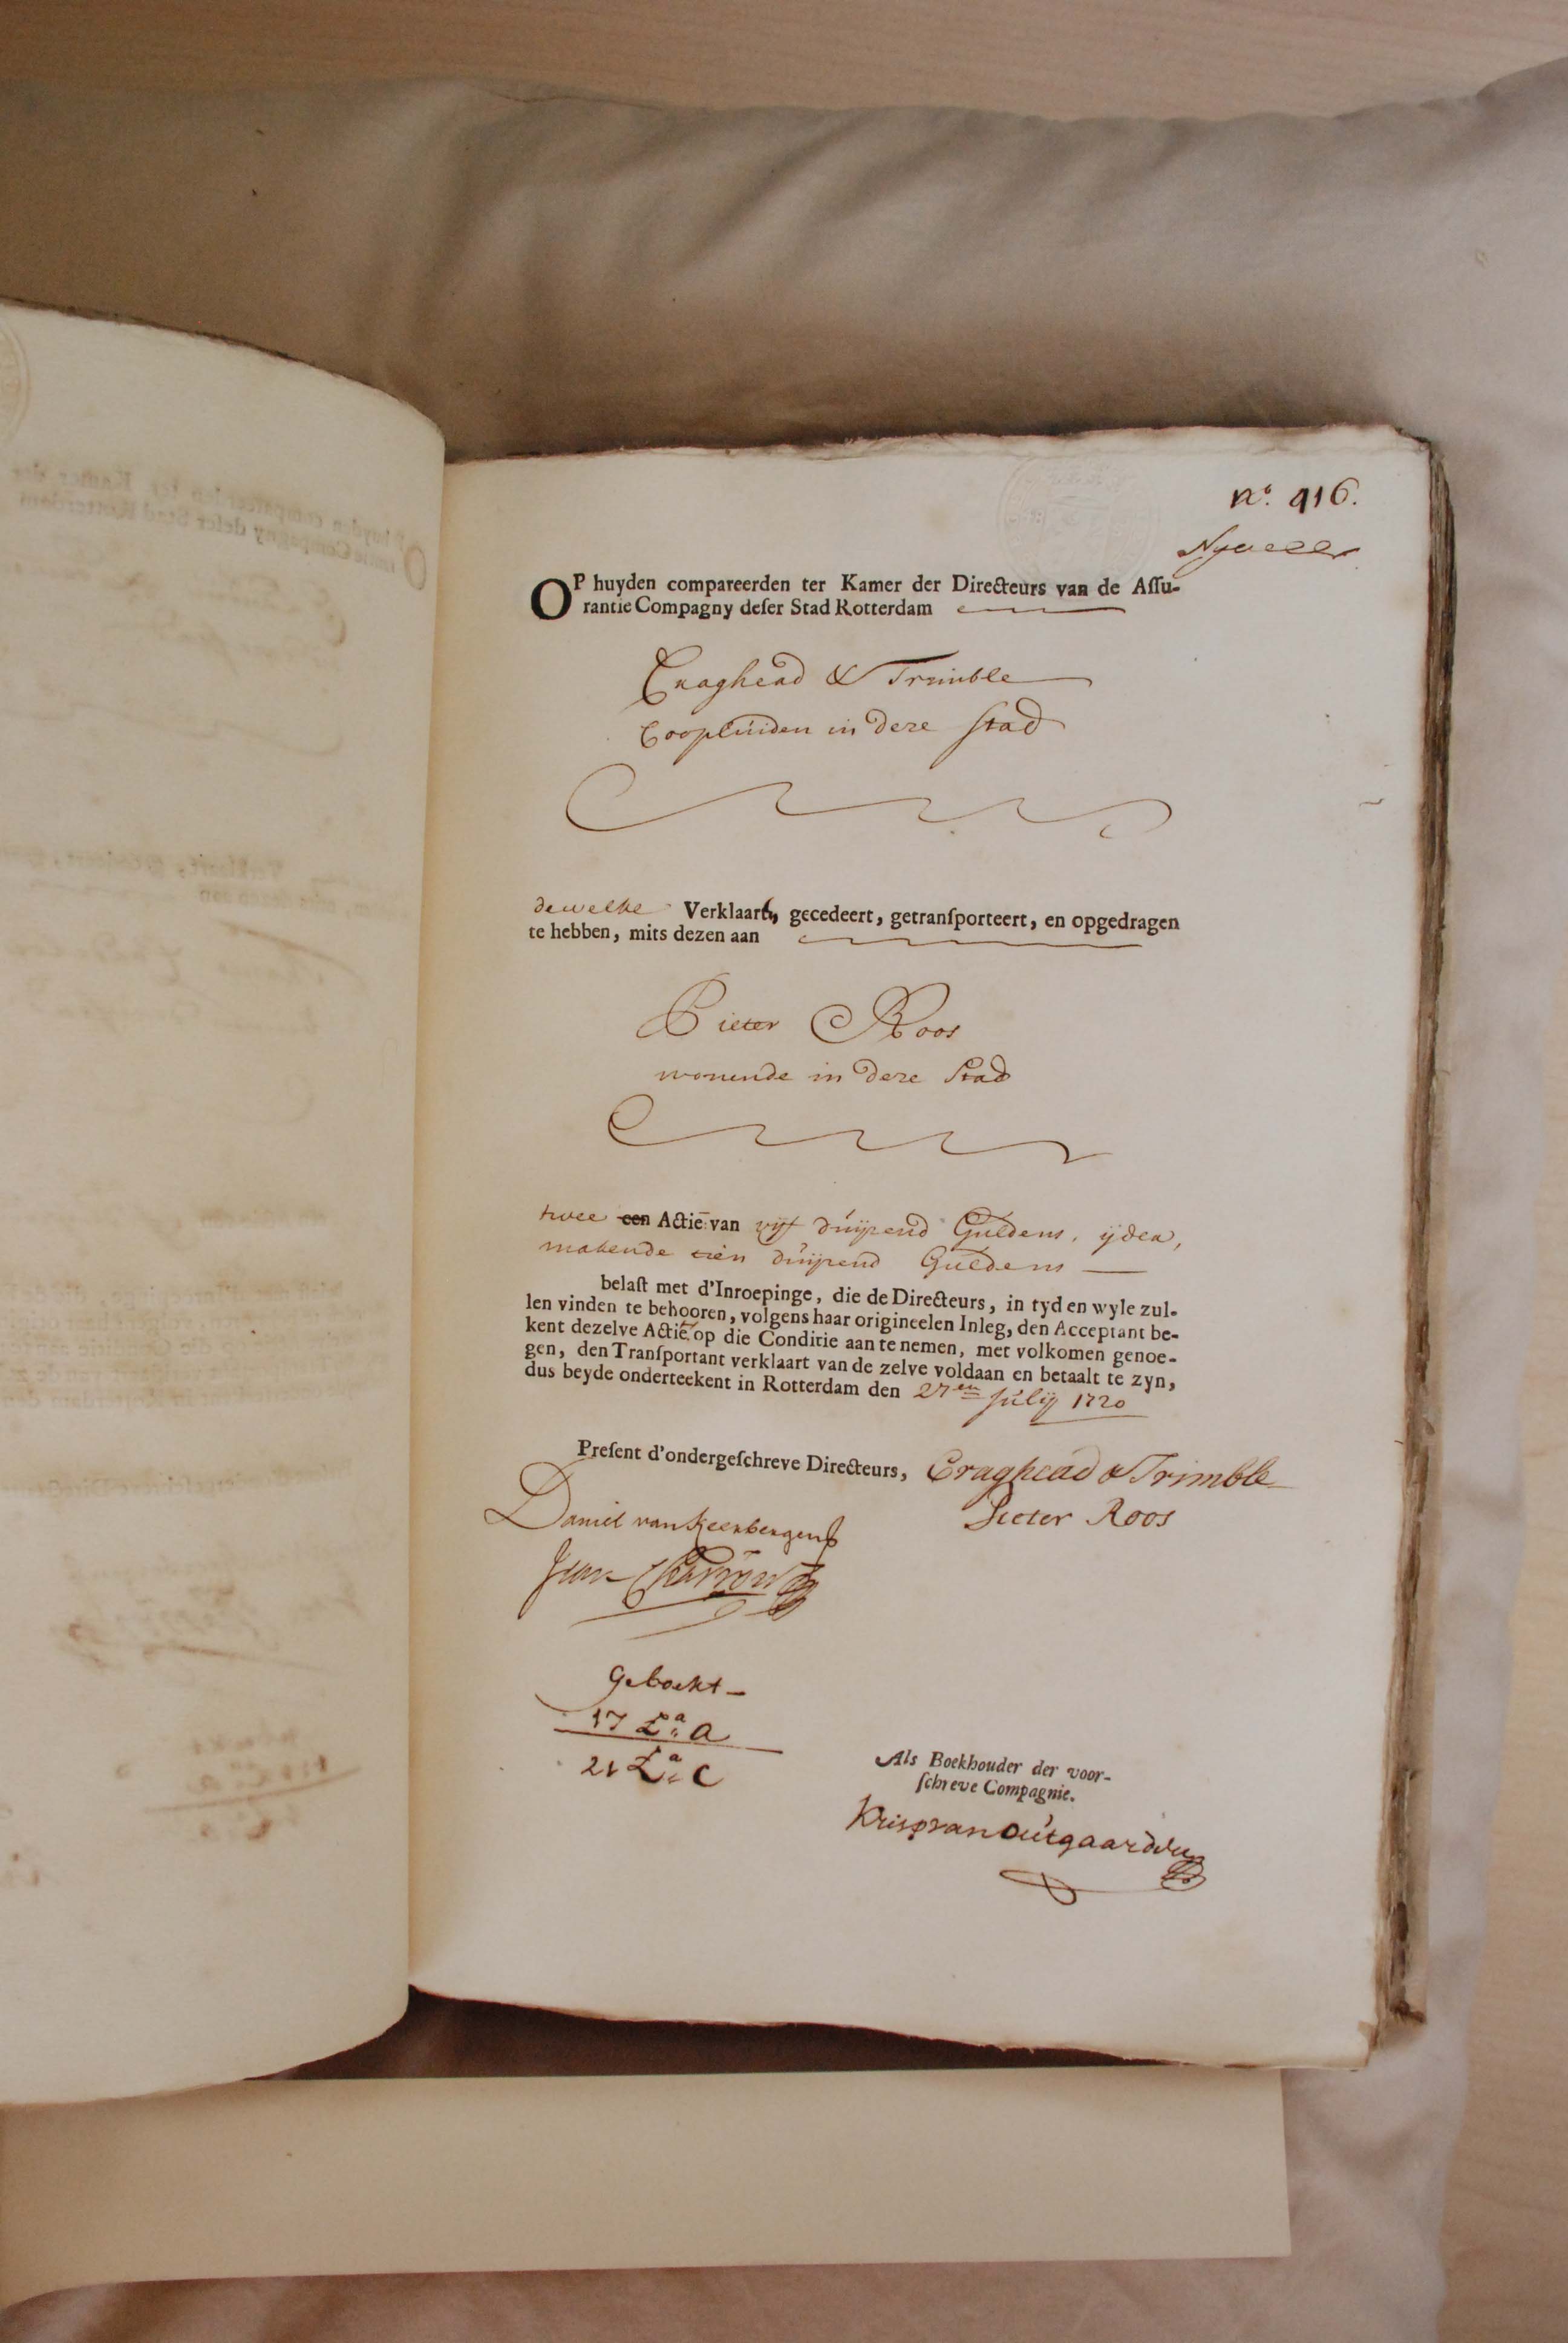 no. 916.
OP huyden compareerden ter Kamer der Directeurs van de Aſſu-
rantie Compagny deſer Stad Rotterdam
Craghead & Trimble
Coopluiden in deze Stad
dewelke Verklaart, gecedeert, getranſporteert, en opgedragen
te hebben, mits dezen aan
Pieter Roos
wonende in deze Stad
twee een Actie van vijf duijzend Guldens, ijder,
makende tien duijzend Guldens
belaſt met d'Inroepinge, die de Directeurs, in tyd en wyle zul-
len vinden te behooren, volgens haar origineelen Inleg, den Acceptant be-
kent dezelve Actie op die Conditie aan te nemen, met volkomen genoe-
gen, den Tranſportant verklaart van de zelve voldaan en betaalt te zyn,
dus beyde onderteekent in Rotterdam den 27en Julij 1720
Preſent d'ondergeſchreve Directeurs, Craghead & Trimble
Daniel van Keerbergen Pieter Roos
Jean
Geboekt
17 La. a
21 La. C
Als Boekhouder der voor-
ſchreve Compagnie.
Kris van Outgaarden